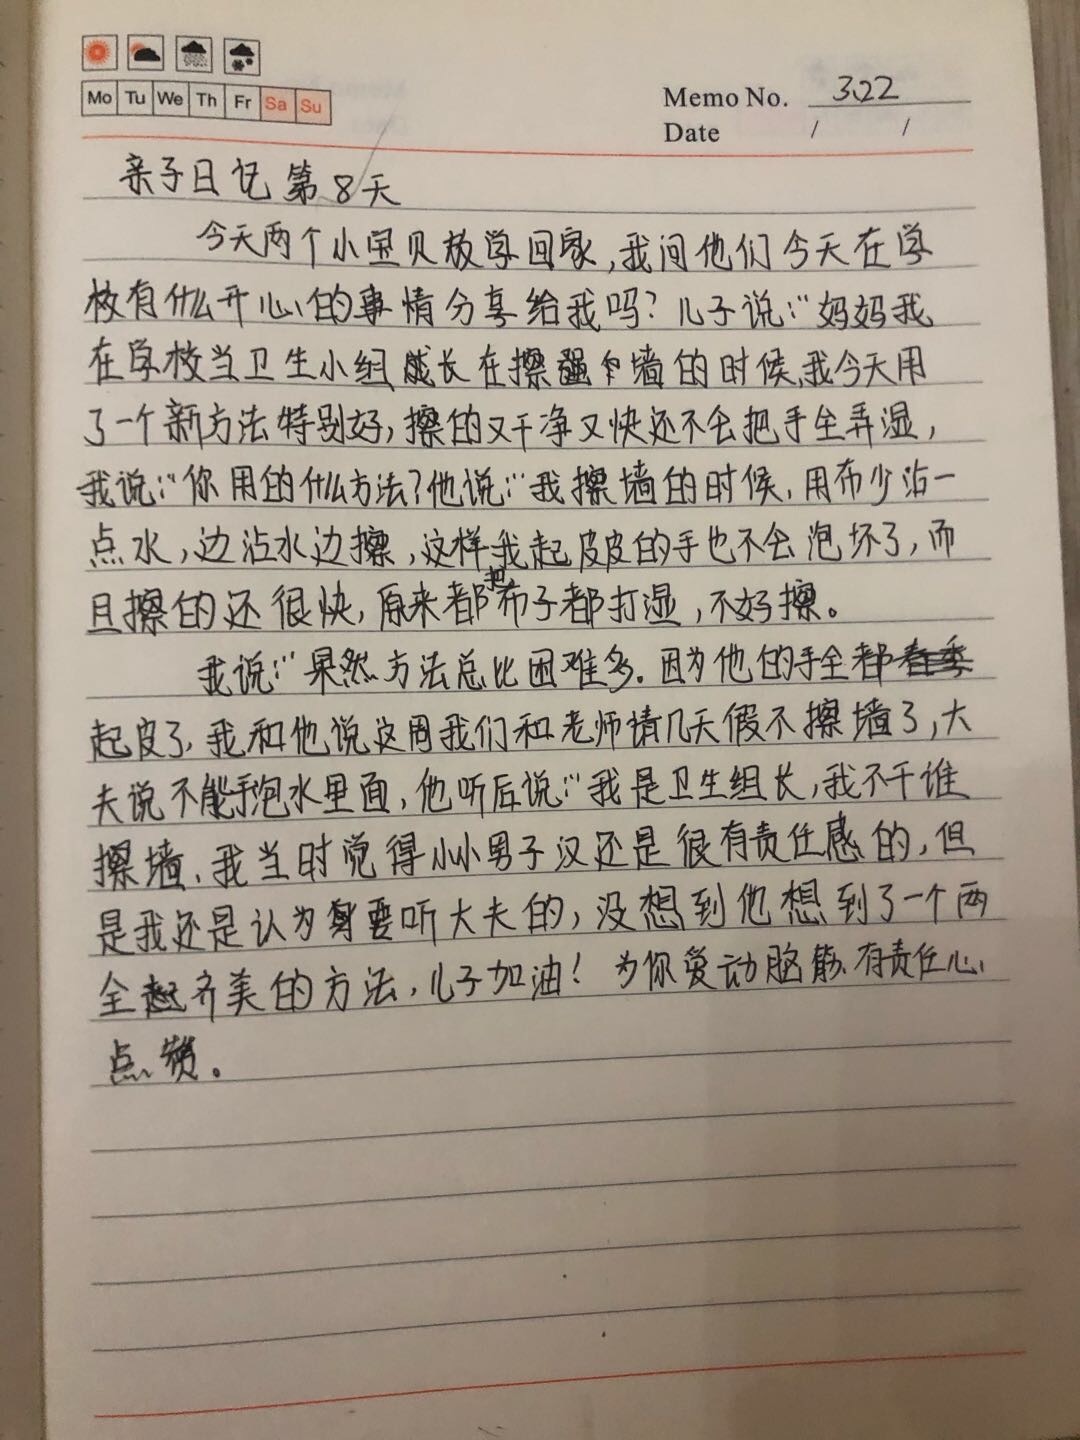 Mo Tu We Th Fr Sa Su
Memo No. 3.22
Date / /
亲子日记第8天
今天两个小宝贝放学回家,我问他们今天在学
校有什么开心的事情分享给我吗?儿子说:"妈妈我
在学校当卫生小组长在擦墙的时候,我今天用
了一个新方法特别好,擦的又干净又快还不会把手全弄湿,
我说:"你用的什么方法?他说:"我擦墙的时候,用布少沾一
点水,边沾水边擦,这样我起皮皮的手也不会泡坏了,而
且擦的还很快,原来都把布子都打湿,不好擦。
我说:"果然方法总比困难多.因为他的手全都
起皮了,我和他说这周我们和老师请几天假不擦墙了,大
夫说不能手泡水里面,他听后说:"我是卫生组长,我不干谁
擦墙、我当时觉得小小男子汉还是很有责任感的,但
是我还是认为要听大夫的,没想到他想到了一个两
全齐美的方法,儿子加油!为你爱动脑筋、有责任心
点赞。